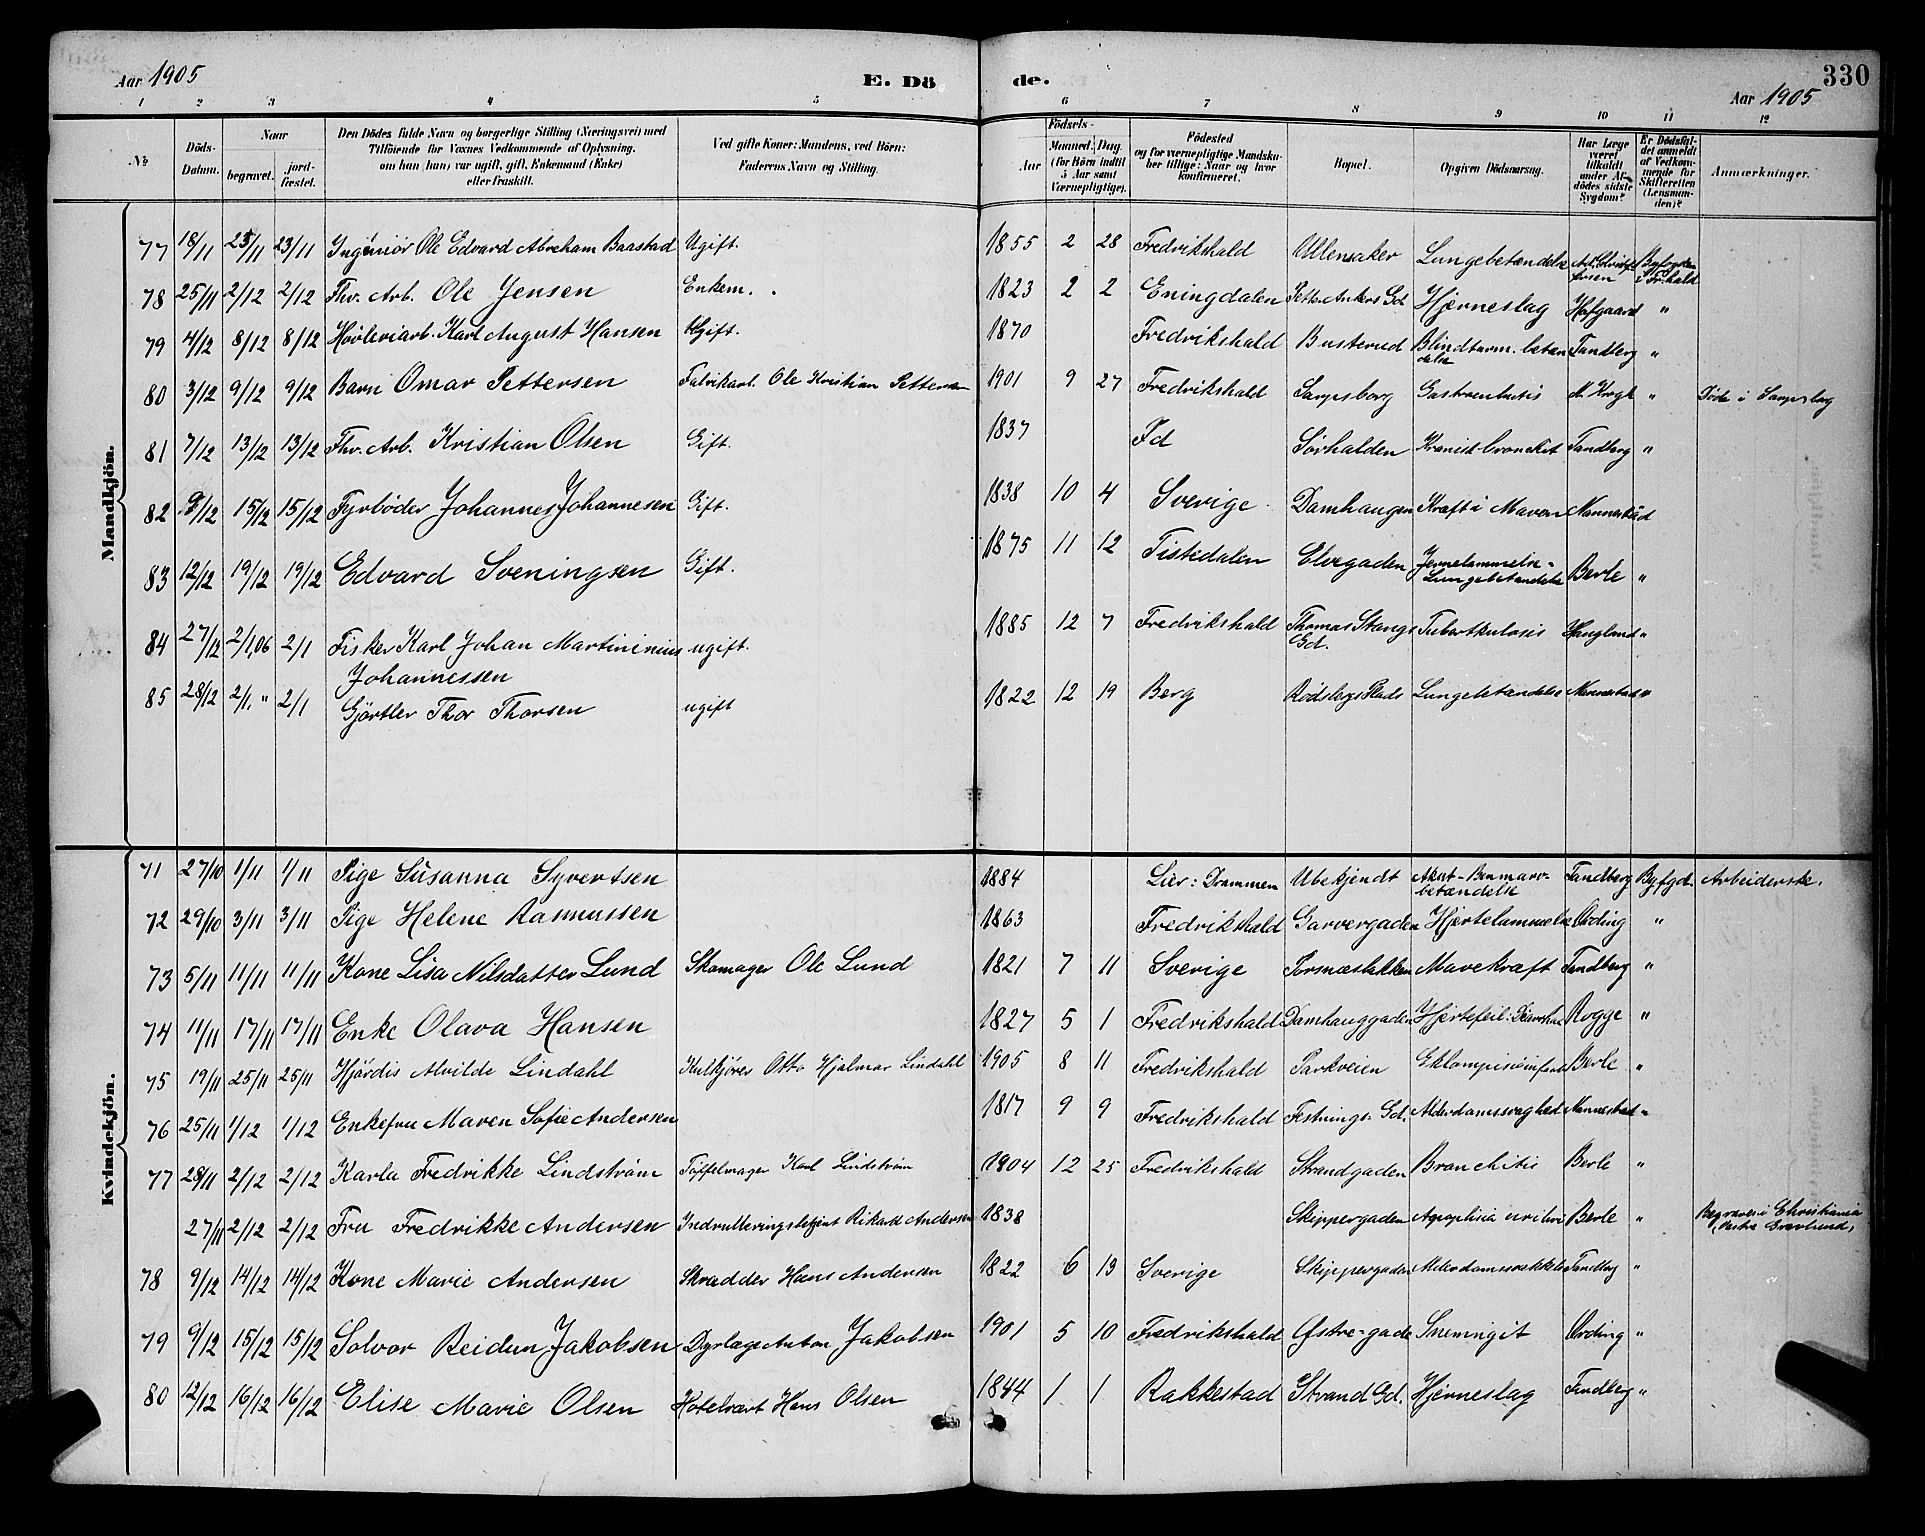 Aar 1905 E. Dö de. Aar 1905 330
1 2 3 4 5 6 7 8 9 10 11 12
No. Döds-Datum. Naar begravet. jord-fæstet. Den Dödes fulde Navn og borgerlige Stilling (Næringsvei) med Tilföiende for Voxnes Vedkommende af Oplysning, om han (hun) var ugift, gift, Enkemand (Enke) eller fraskilt. Ved gifte Koner: Mandens, ved Börn: Faderens Navn og Stilling. Födsels- Aar Maaned. Dag. (for Börn indtil 5 Aar samt Værnepligtige). Födested og for værnepligtige Mandskaber tillige: Naar og hvor konfirmeret. Bopæl. Opgiven Dödsaarsag. Har Læge været tilkaldt under Afdödes sidste Sygdom? Er Dödsfaldet anmeldt af Vedkommende for Skifteretten (Lensmanden)? Anmærkninger.
Mandkjön.
77 18/11 23/11 23/11 Ingeniör Ole Edvard Abraham Baastad Ugift. 1855 2 28 Fredrikshald Ullensaker Lungebetændelse Byfogden i Fr.hald
78 25/11 2/12 2/12 Fhv. Arb. Ole Jensen Enkem. 1823 2 2 Eningdalen Petter Ankers Gd. Hjerneslag Hofgaard "
79 4/12 8/12 8/12 Høvleriarb. Karl August Hansen Ugift. 1870 Fredrikshald Busterud Blindtarm.betændelse Tandberg "
80 3/12 9/12 9/12 Barn Omar Pettersen Fabrikarb. Ole Kristian Pettersen 1901 9 27 Fredrikshald Sarpsborg Krogh " Døde i Sarpsborg
81 7/12 13/12 13/12 Fhv. Arb. Kristian Olsen Gift. 1837 Id Sørhalden Tandberg "
82 9/12 15/12 15/12 Fyrbøder Johannes Johannesen Gift. 1838 10 4 Sverige Damhaugen Kræft i Maven Mannestad
83 12/12 19/12 19/12 Edvard Sveningsen Gift. 1875 11 12 Tistedalen Elvegaden Lungebetændelse Berle "
84 27/12 2/1,06 2/1 Fisker Karl Johan Martininius Johannessen ugift. 1885 12 7 Fredrikshald Thomas Stangs Gd. Tuberkulosis Haugland "
85 28/12 2/1, " 2/1 Gjørtler Thor Thorsen ugift 1822 12 19 Berg Rødsbergs Plads Lungebetændelse Mannestad "
Kvindekjön.
71 27/10 1/11 1/11 Pige Susanna Syvertsen 1884 Lier: Drammen Ubekjendt Akut-Benmarvbetændelse Tandberg Byfgd. Arbeiderske.
72 29/10 3/11 3/11 Pige Helene Rasmussen 1863 Fredrikshald Garvergaden Hjertelammelse Ording "
73 5/11 11/11 11/11 Kone Lisa Nilsdatter Lund Skomager Ole Lund 1821 7 11 Sverige Porsnæsbakken Mavekræft Tandberg "
74 11/11 17/11 17/11 Enke Olava Hansen 1827 5 1 Fredrikshald Damhauggaden Hjertefeil: Diarrhoe Rogge "
75 19/11 25/11 25/11 Hjördis Alvilde Lindahl Kulkjører Otto Hjalmar Lindahl 1905 8 11 Fredrikshald Parkveien Berle "
76 25/11 1/12 1/12 Enkefru Maren Sofie Andersen 1817 9 9 Fredrikshald Festnings Gd. Alderdomssvaghed Mannestad "
77 28/11 2/12 2/12 Karla Fredrikke Lindstrøm Tøffelmager Karl Lindstrøm 1904 12 25 Fredrikshald Strandgaden Bronchitis Berle "
27/11 2/12 2/12 Fru Fredrikke Andersen Indrulleringsbetjent Rikard Andersen 1838 Skippergaden Berle " Begraves i Christiania (Vestre Gravlund)
78 9/12 14/12 14/12 Kone Marie Andersen Skrædder Hans Andersen 1822 6 13 Sverige Skippergaden Tandberg "
79 9/12 15/12 15/12 Solvor Reidun Jakobsen Dyrlæge Anton Jakobsen 1901 5 10 Fredrikshald Østre-gade Ording "
80 12/12 16/12 16/12 Elise Marie Olsen Hotelvært Hans Olsen 1844 1 1 Rakkestad Strand Gd. Hjerneslag Tandberg "